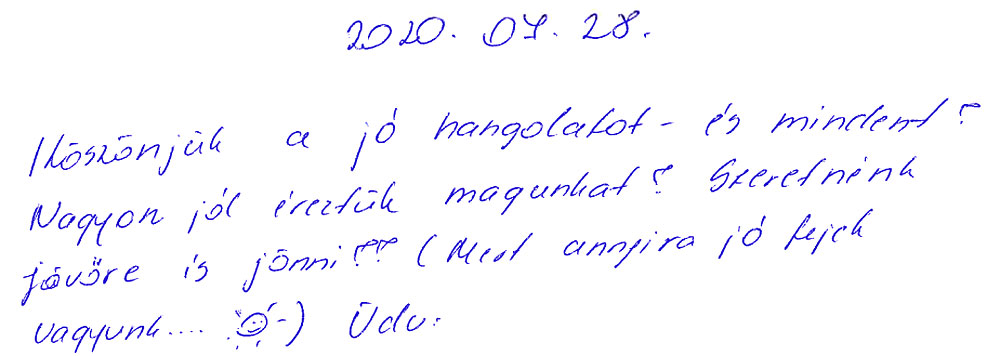 2020. 07. 28.
Köszönjük a jó hangolatot - és mindent!
Nagyon jól éreztük magunkat! Szeretnénk
jövőre is jönni!!! (Mert annyira jó fejek
vagyunk.... ☺-) Üdv: